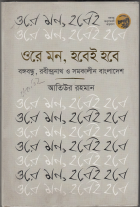 ওরে মন, হবেই হবে
ওরে মন, হবেই হবে
বঙ্গবন্ধু, রবীন্দ্রনাথ ও সমকালীন বাংলাদেশ
আতিউর রহমান
ওরে মন, হবেই হবে
ওরে মন, হবেই হবে
ওরে মন, হবেই হবে
ওরে মন, হবেই হবে